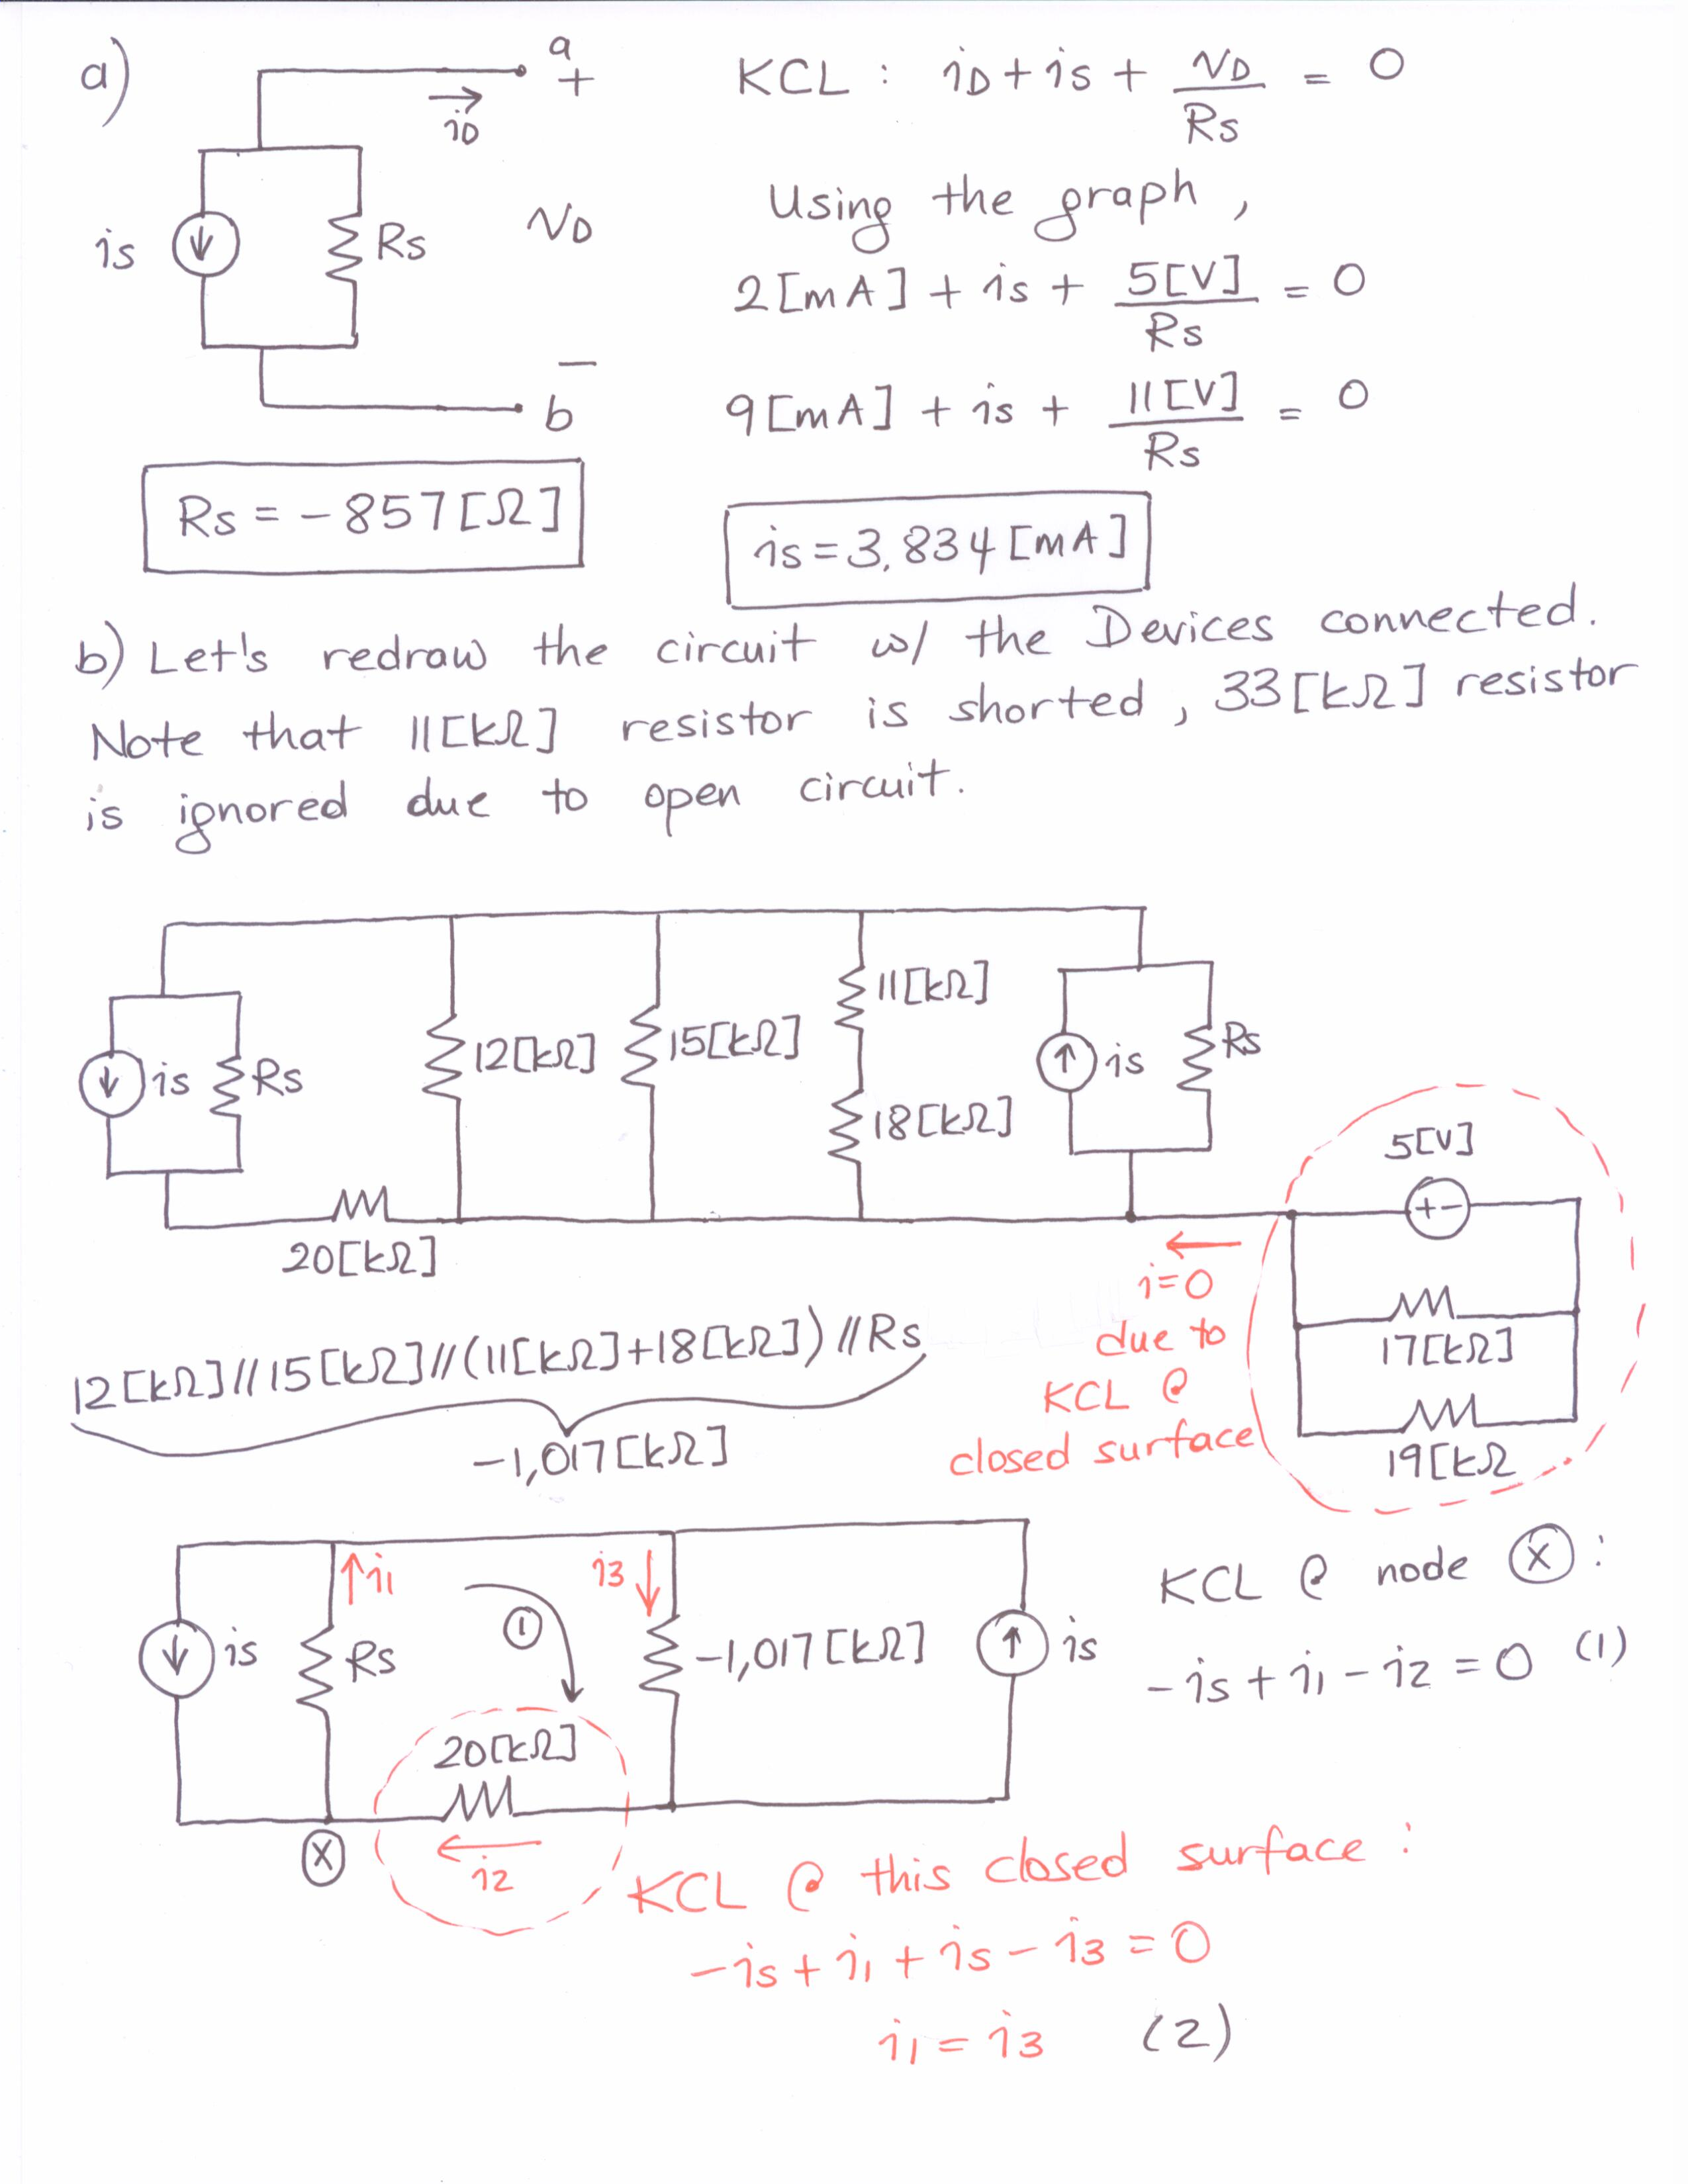 a)
a
+
iD
is
Rs
vD
−
b
KCL : iD + is + vD/Rs = 0
Using the graph,
2[mA] + is + 5[V]/Rs = 0
9[mA] + is + 11[V]/Rs = 0
Rs = −857[Ω]
is = 3.834[mA]
b) Let's redraw the circuit w/ the Devices connected.
Note that 11[kΩ] resistor is shorted, 33[kΩ] resistor
is ignored due to open circuit.
is
Rs
12[kΩ]
15[kΩ]
11[kΩ]
18[kΩ]
is
Rs
20[kΩ]
5[V]
+ −
17[kΩ]
19[kΩ
i=0
due to
KCL @
closed surface
12[kΩ]//15[kΩ]//(11[kΩ]+18[kΩ])//Rs
−1,017[kΩ]
is
Rs
i1
1
i3
−1,017[kΩ]
is
20[kΩ]
i2
X
KCL @ node X :
−is + i1 − i2 = 0 (1)
KCL @ this closed surface :
−is + i1 + is − i3 = 0
i1 = i3 (2)